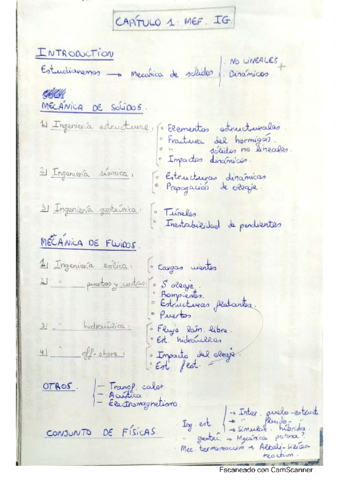 CAPÍTULO 1: MEF. IG.
INTRODUCTION
Estudiaremos → Mecánica de sólidos
NO LINEALES
Dinámicos
MECÁNICA DE SÓLIDOS.
1) Ingeniería estructural:
• Elementos estructurales
• Fractura del hormigón.
• " sólidos no lineales.
• Impactos dinámicos.
2) Ingeniería sísmica:
• Estructuras dinámicas
• Propagación de oleaje
3) Ingeniería geotécnica:
• Túneles
• Inestabilidad de pendientes
MECÁNICA DE FLUIDOS.
1) Ingeniería eólica:
• Cargas vientos
2) puertos y costas:
• oleaje.
• Rompientes.
• Estructuras flotantes.
• Puertos
3) hidráulica:
• Flujo lam. libre
• Est. hidráulicas
4) off-shore:
• Impacto del oleaje
• Est. flot.
OTROS
- Transf. calor
- Acústica
- Electromagnetismo
CONJUNTO DE FÍSICAS
Ing. est
→ Inter. suelo-estruct
→ " fluido
→ Simulat. híbrida
" geotéc. → Mecánica
Mec.
Escaneado con CamScanner